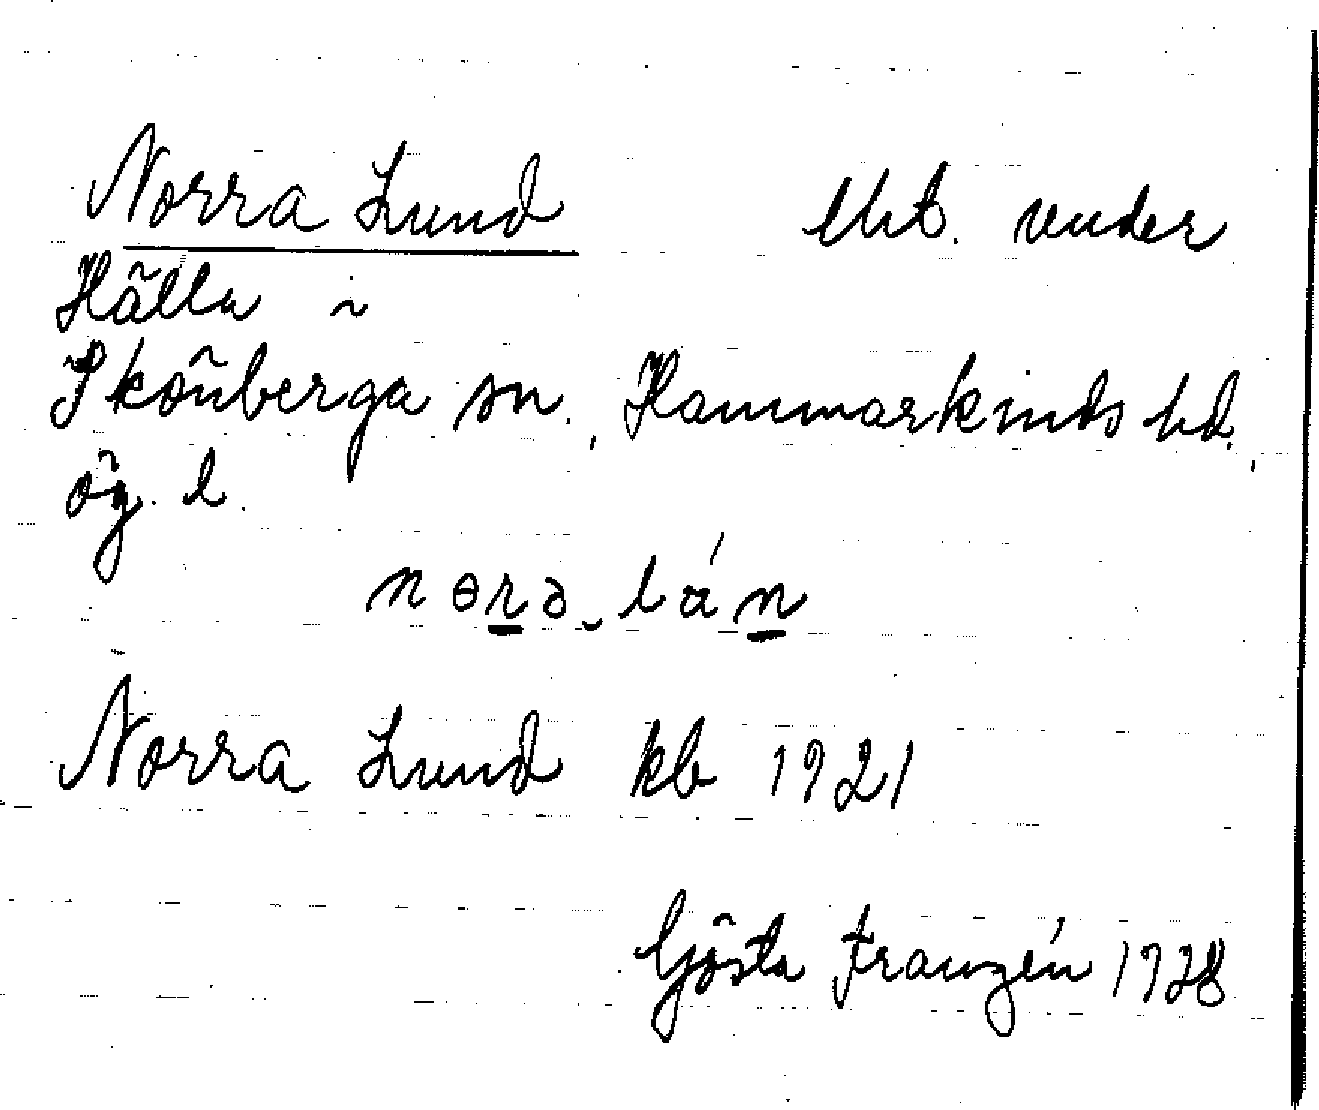 Norra Lund Utt. under
Hälla i
Skönberga sn., Hammarkinds hd.,
Ög. l.
nɵrə‿lán
Norra Lund kb 1921
Gösta Franzén 1928